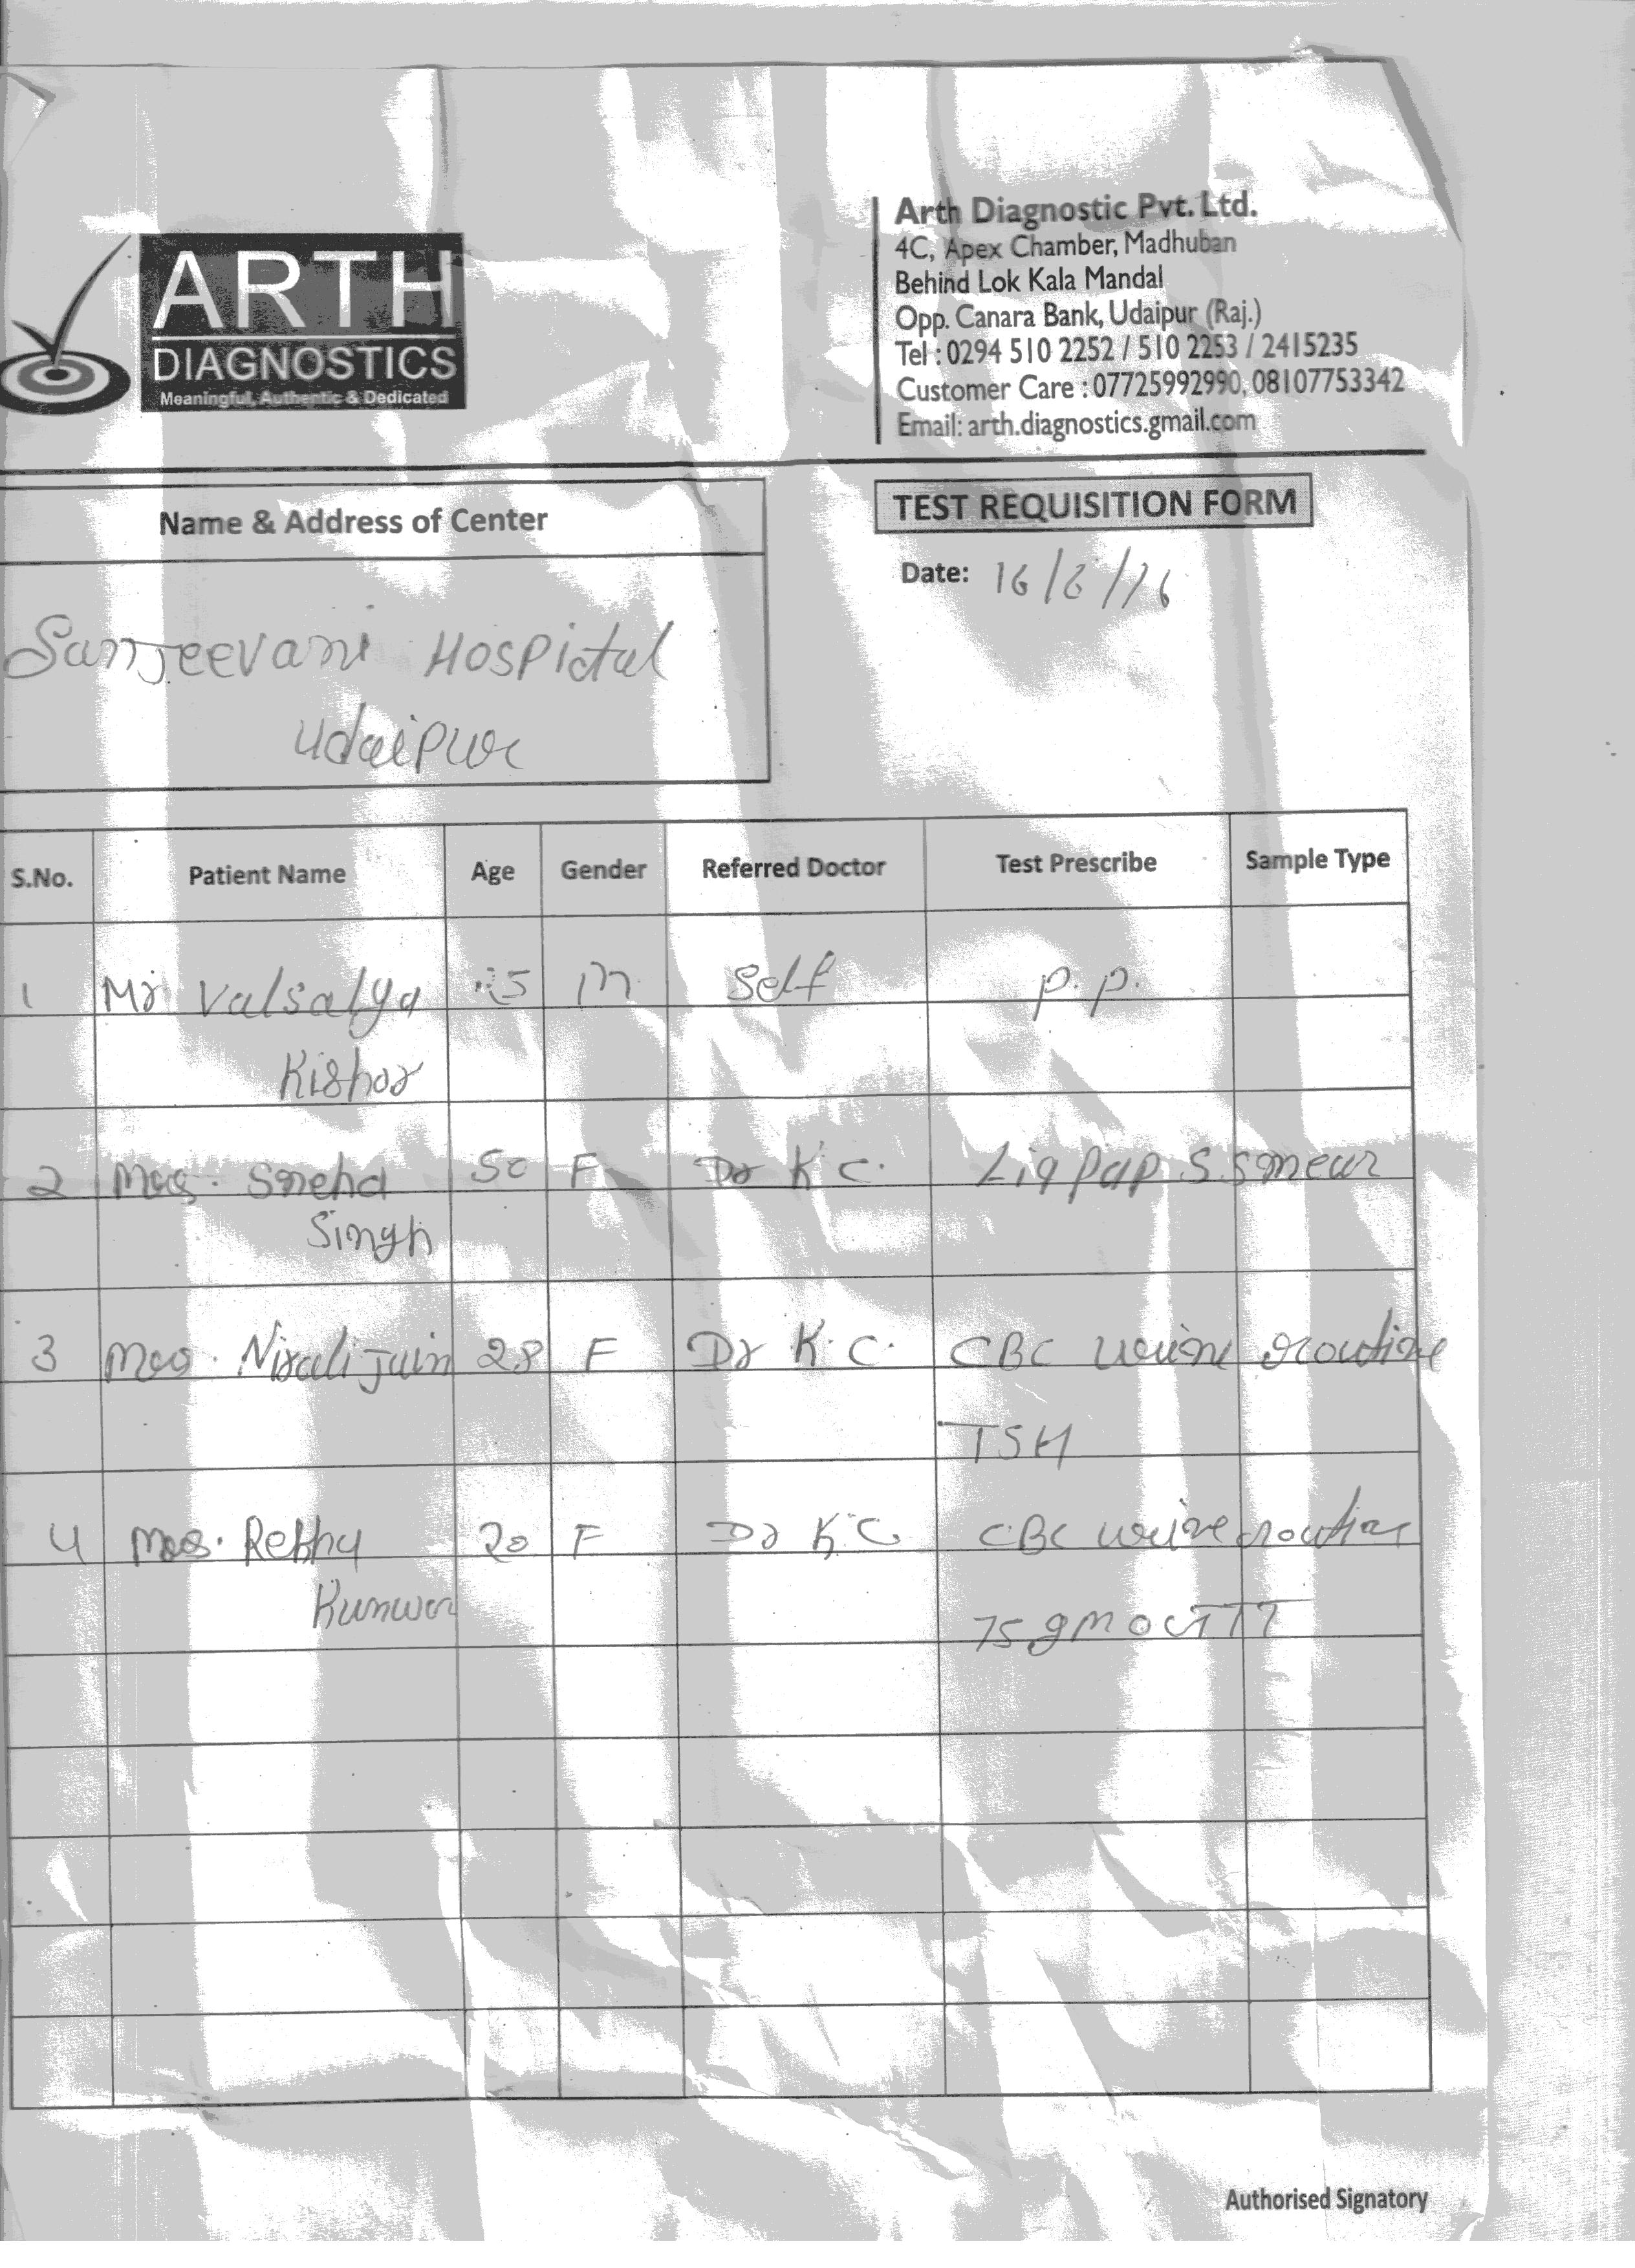 ARTH
DIAGNOSTICS
Meaningful, Authentic & Dedicated
Arth Diagnostic Pvt. Ltd.
4C, Apex Chamber, Madhuban
Behind Lok Kala Mandal
Opp. Canara Bank, Udaipur (Raj.)
Tel : 0294 510 2252 / 510 2253 / 2415235
Customer Care : 07725992990, 08107753342
Email: arth.diagnostics.gmail.com
Name & Address of Center
TEST REQUISITION FORM
Date: 16/6/16
Sanjeevani Hospictal
Udaipur
S.No. Patient Name Age Gender Referred Doctor Test Prescribe Sample Type
1 Mr Valsalya M Self P.P.
Kishor
2 Mrs. Sneha 50 F Dr K C. Liq Pap S. Smear
Singh
3 Mrs. Nirali Jain 28 F Dr K.C. CBC Urine routine
TSH
4 Mrs. Rekha 20 F Dr K.C. CBC urine routine
Kunwar
75 gm OGTT
Authorised Signatory